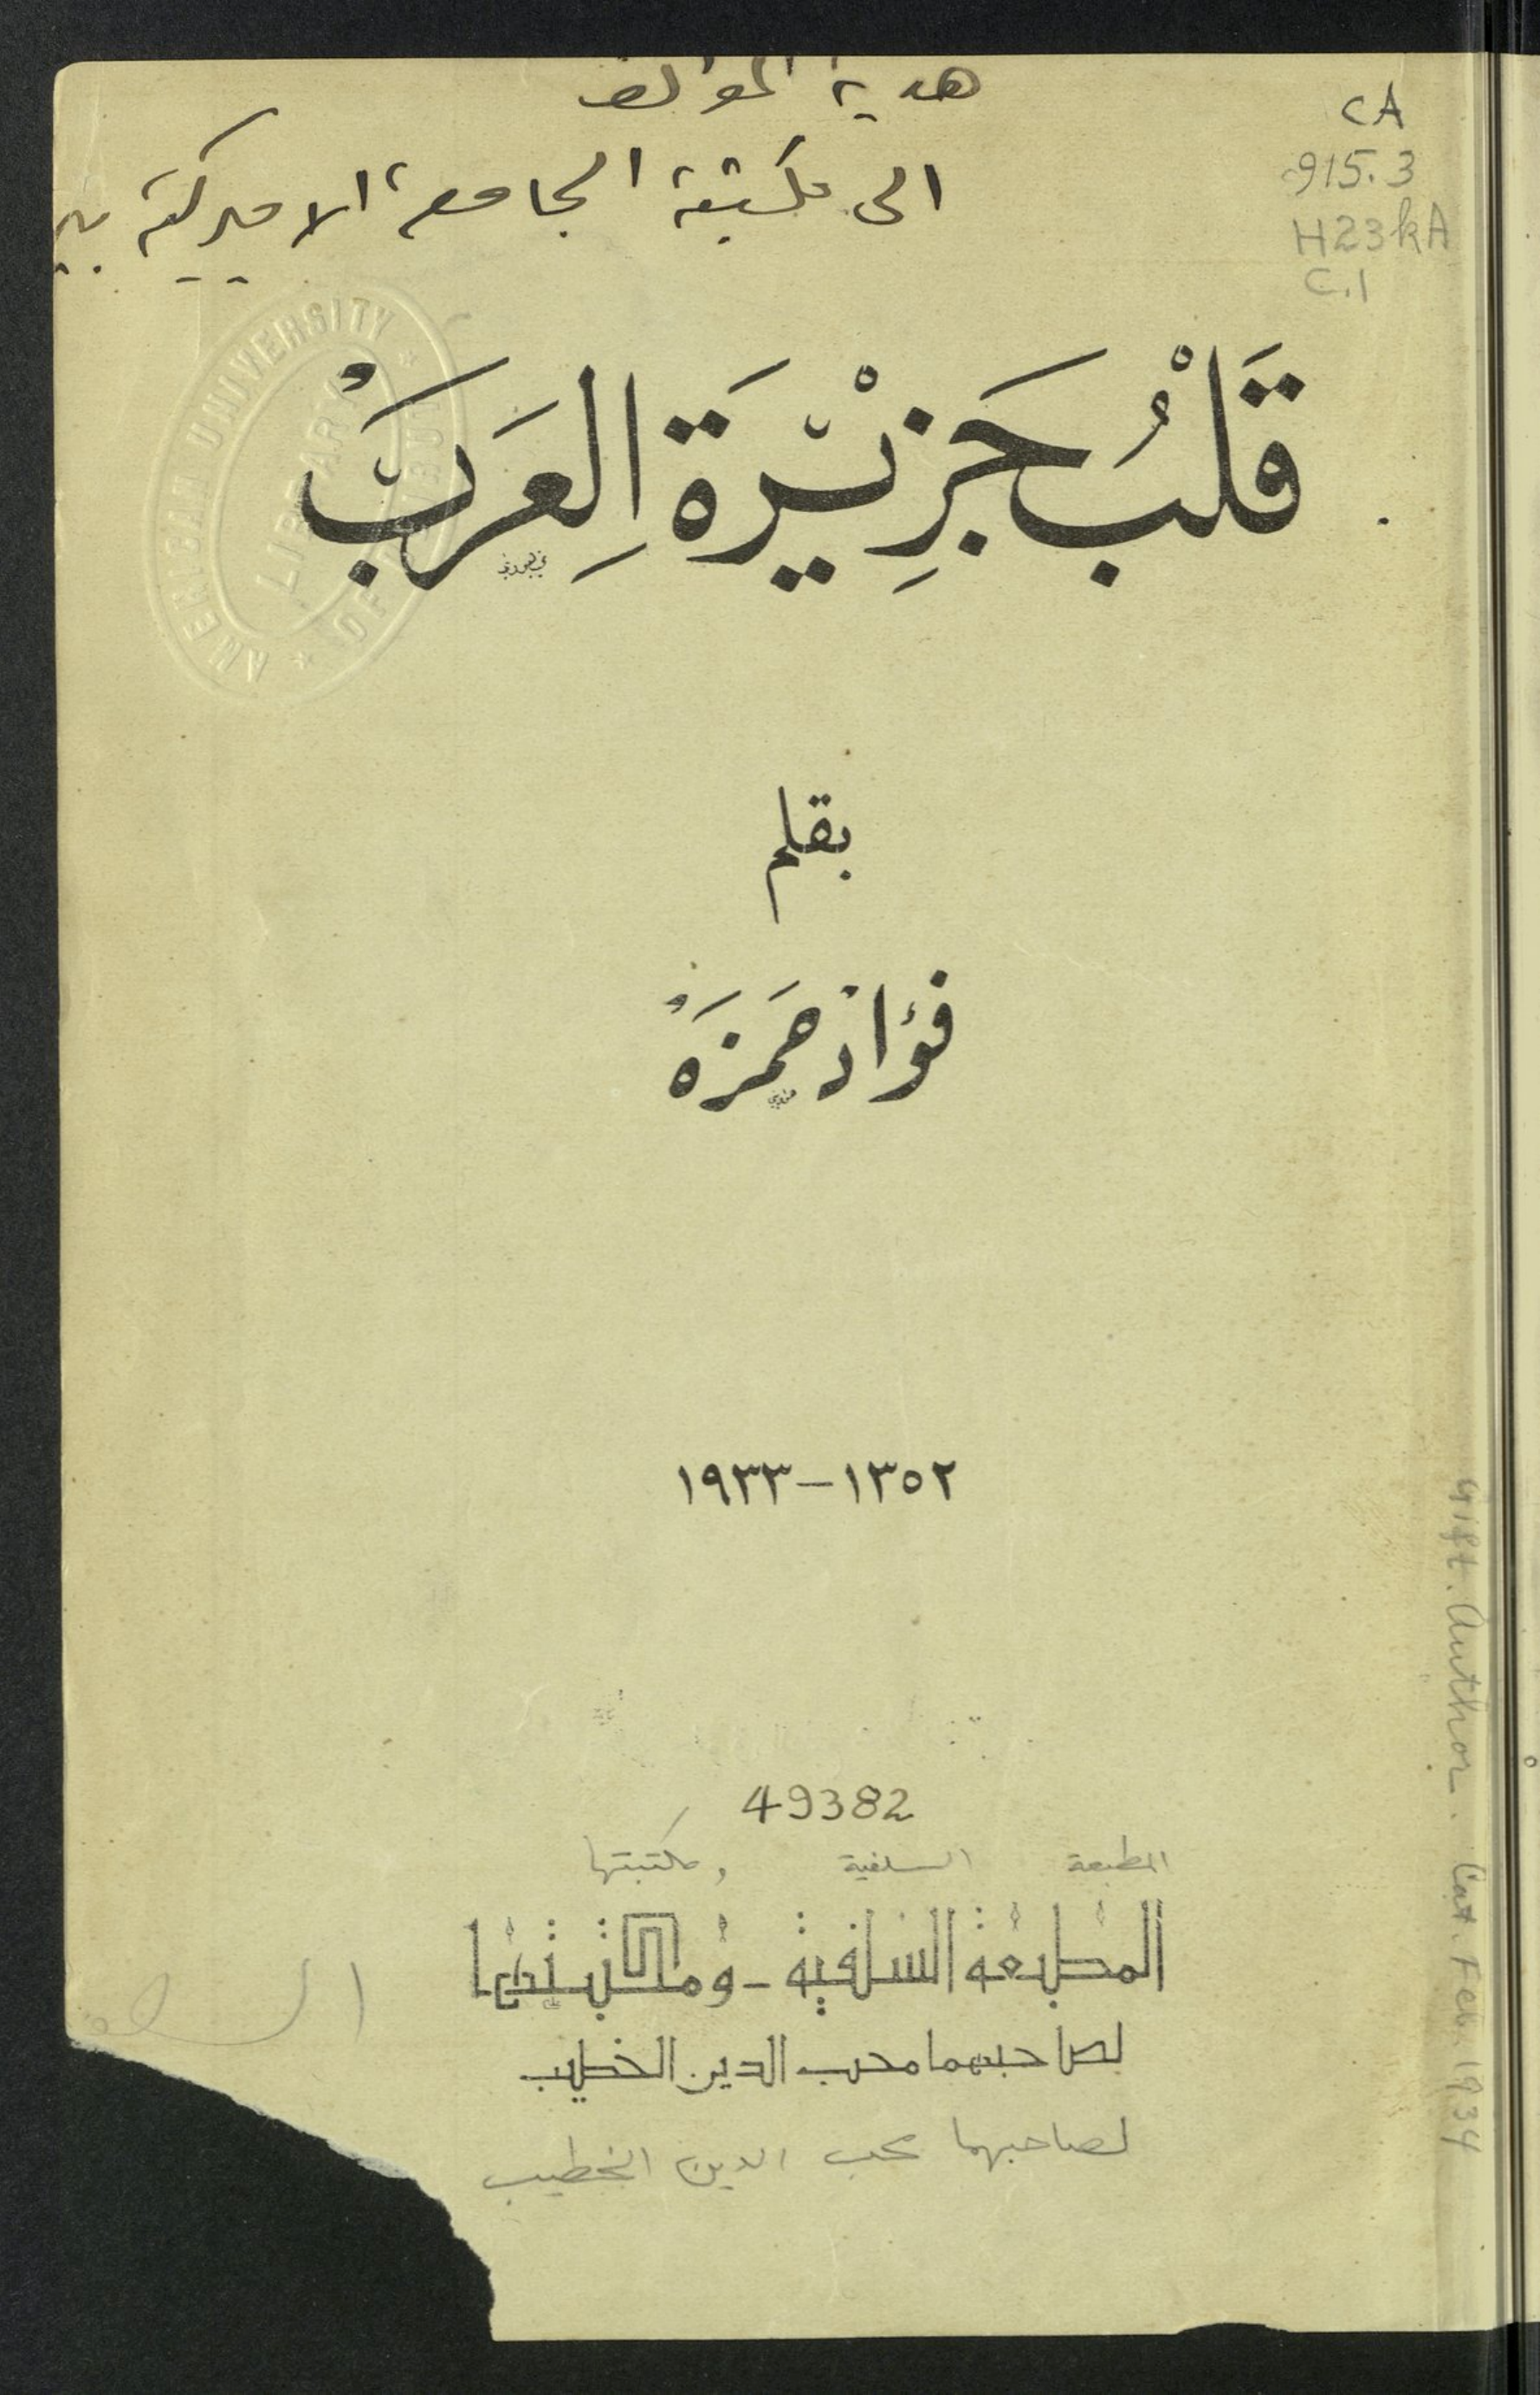 هدية المؤلف
الى مكتبة الجامعة الاميركية
CA
915.3
H23kA
C.1
AMERICAN UNIVERSITY OF BEIRUT
LIBRARY
قَلْبُ جَزِيْرَة العَرَبْ
بقلم
فؤاد حمزة
١٣٥٢-١٩٣٣
49382
المطبعة السلفية ومكتبتها
المطبعة السلفية - ومكتبتها
لصاحبهما محب الدين الخطيب
لصاحبهما محب الدين الخطيب
Gift. Author. Cat. Feb. 1934